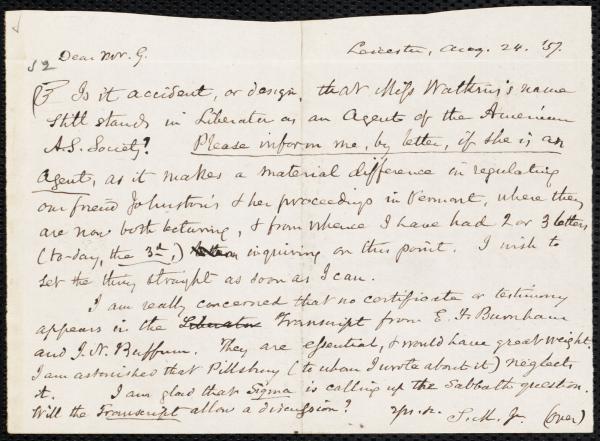 Dear Mr. G. Leicester, Aug. 24. '57.
Is it accident, or design, that Miss Watkins's name
still stands in Liberator as an Agent of the American
A.S. Society? Please inform me, by letter, if she is an
Agent, as it makes a material difference in regulating
our friend Johnston's & her proceedings in Vermont, where they
are now both lecturing, & from whence I have had 2 or 3 letters
(to-day, the 3d,) inquiring on this point. I wish to
set the thing straight as soon as I can.
I am really concerned that no certificate or testimony
appears in the Liberator Transcript from E. H. Burnham
and J. N. Buffum. They are essential, & would have great weight.
I am astonished that Pillsbury (to whom I wrote about it) neglects
it. I am glad that Sigma is calling up the Sabbath question.
Will the Transcript allow a discussion? Yrs.
S. M. Jr. (over)